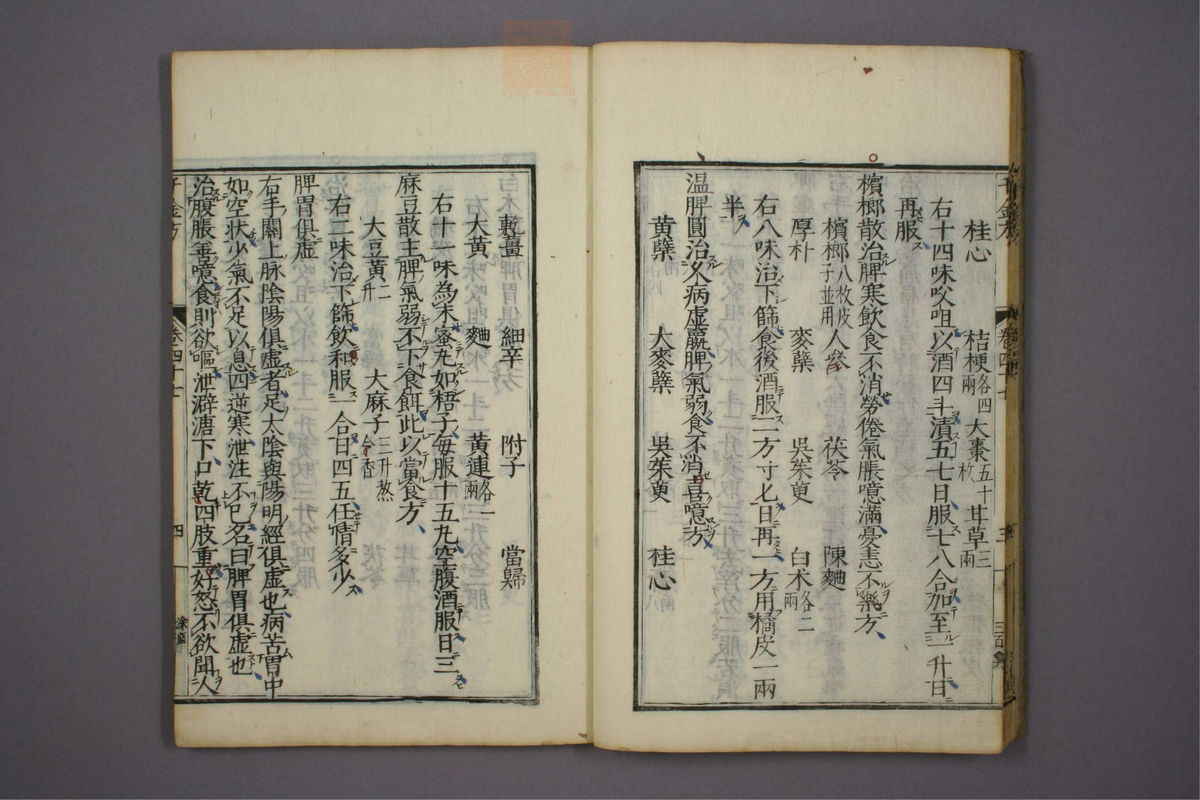 桂心　桔梗各四兩　大棗五十枚　甘草三兩
右十四味㕮咀以酒四斗漬五七日服七八合加至一升日
再服
檳榔散治脾寒飲食不消勞倦氣脹噫滿憂恚不樂方
檳榔八枚皮子並用　人參　茯苓　陳麯
厚朴　麥蘗　吳茱萸　白朮各二兩
右八味治下篩食後酒服二方寸匕日再一方用橘皮一兩
半
溫脾圓治久病虛羸脾氣弱食不消喜噫方
黃蘗　大麥蘗　吳茱萸　桂心
乾薑　細辛　附子　當歸
大黃　麯　黃連各一兩
右十一味為末蜜丸如梧子每服十五丸空腹酒服日三
麻豆散主脾氣弱不下食餌此以當食方
大豆黃二升　大麻子三升熬令香
右二味治下篩飲和服一合日四五任情多少
脾胃俱虛
右手關上脉陰陽俱虛者足太陰與陽明經俱虛也病苦胃中
如空狀少氣不足以息四逆寒泄注不已名曰脾胃俱虛也
治腹脹善噫食則欲嘔泄澼溏下口乾四肢重好怒不欲聞人
千金方　卷四十七　四